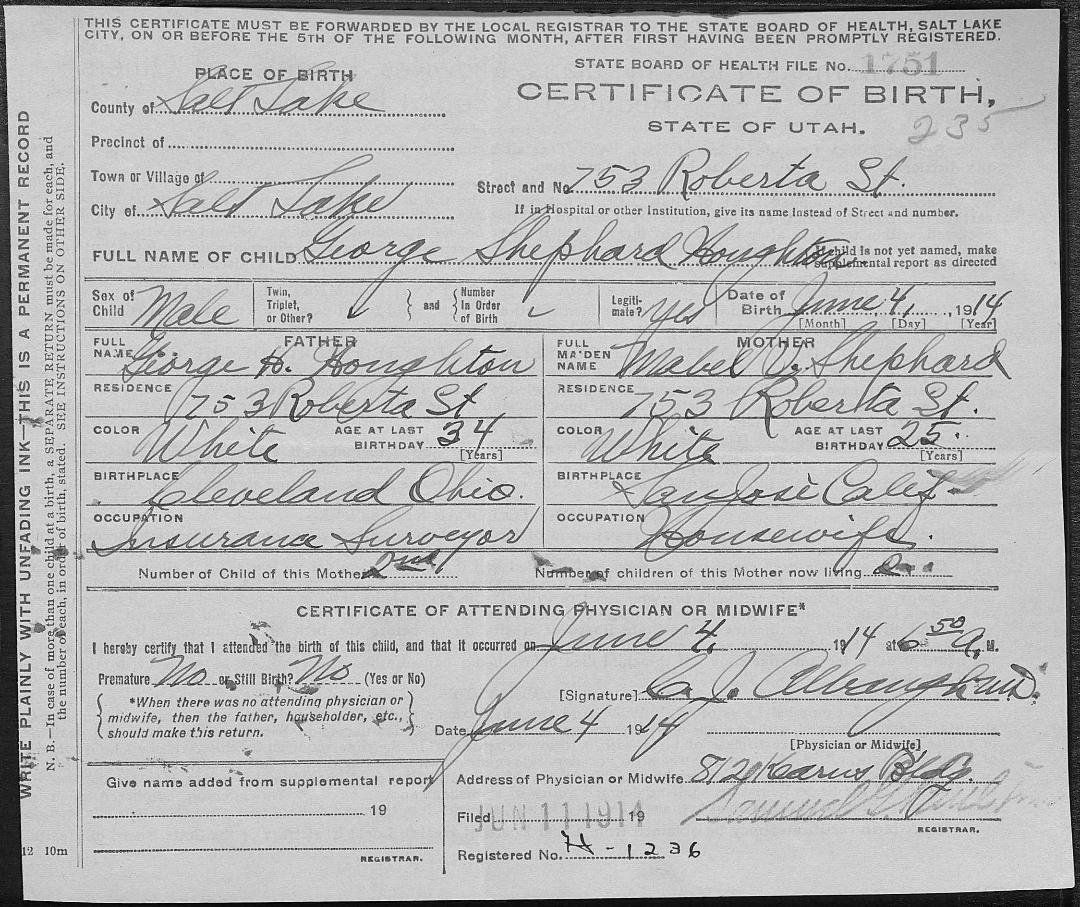 THIS CERTIFICATE MUST BE FORWARDED BY THE LOCAL REGISTRAR TO THE STATE BOARD OF HEALTH, SALT LAKE
CITY, ON OR BEFORE THE 5TH OF THE FOLLOWING MONTH, AFTER FIRST HAVING BEEN PROMPTLY REGISTERED.
STATE BOARD OF HEALTH FILE No. 1751
PLACE OF BIRTH
CERTIFICATE OF BIRTH,
County of Salt Lake
STATE OF UTAH. 235
Precinct of
Town or Village of
Street and No. 753 Roberta St.
City of Salt Lake
If in Hospital or other Institution, give its name instead of Street and number.
FULL NAME OF CHILD George Shephard Houghton
If child is not yet named, make
supplemental report as directed
Sex of Child Male
Twin, Triplet, or Other?
and
Number In Order of Birth
Legiti- mate? Yes
Date of Birth June 4, 1914
[Month] [Day] [Year]
FATHER
FULL NAME George H. Houghton
RESIDENCE 753 Roberta St
COLOR White AGE AT LAST BIRTHDAY 34 [Years]
BIRTHPLACE Cleveland Ohio.
OCCUPATION Insurance Surveyor
MOTHER
FULL MAIDEN NAME Mabel V. Shephard
RESIDENCE 753 Roberta St.
COLOR White AGE AT LAST BIRTHDAY 25. [Years]
BIRTHPLACE San Jose Calif.
OCCUPATION Housewife.
Number of Child of this Mother 2nd Number of children of this Mother now living
CERTIFICATE OF ATTENDING PHYSICIAN OR MIDWIFE*
I hereby certify that I attended the birth of this child, and that it occurred on June 4, 1914 at 6 50 a. M.
Premature No or Still Birth? No (Yes or No)
[Signature]
*When there was no attending physician or
midwife, then the father, householder, etc.,
should make this return.
Date June 4 1914
[Physician or Midwife]
Give name added from supplemental report
Address of Physician or Midwife 812 Kearns Bldg.
19
Filed JUN 11 1914 19
REGISTRAR.
REGISTRAR.
Registered No. H-1236
12 10m
WRITE PLAINLY WITH UNFADING INK—THIS IS A PERMANENT RECORD
N. B.—In case of more than one child at a birth, a SEPARATE RETURN must be made for each, and
the number of each, in order of birth, stated. SEE INSTRUCTIONS ON OTHER SIDE.